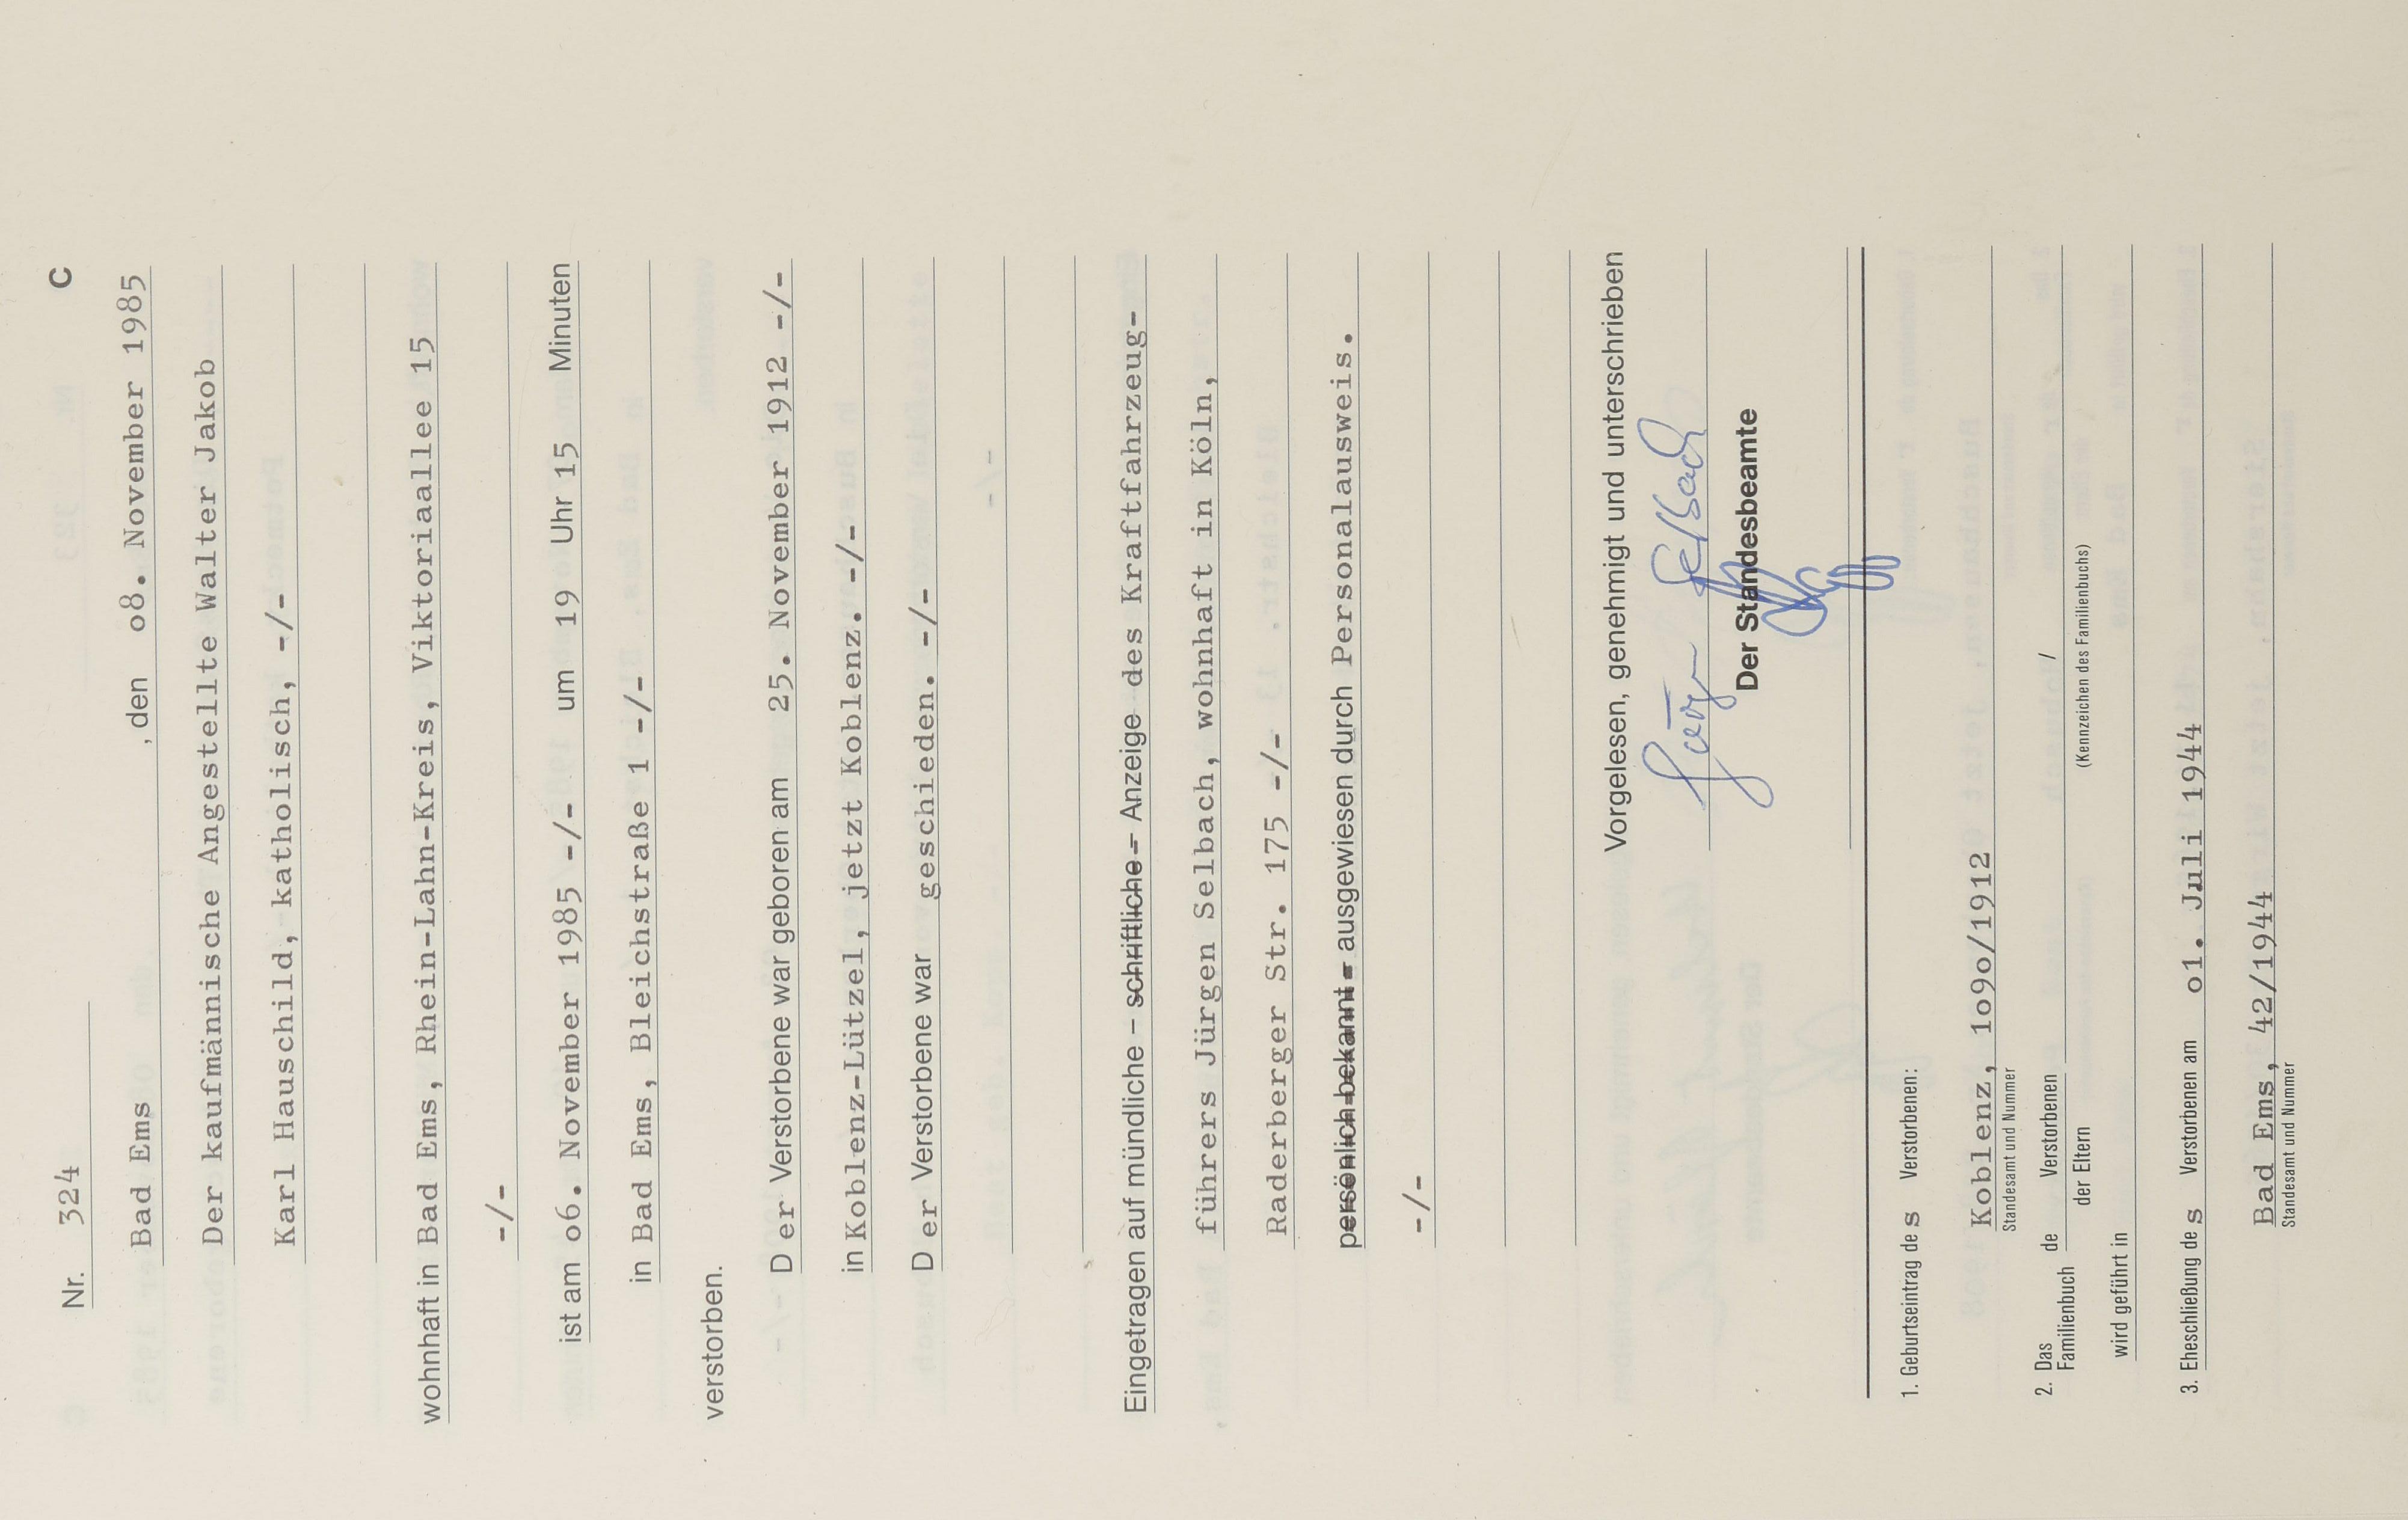 Nr. 324 C
Bad Ems , den o8. November 1985
Der kaufmännische Angestellte Walter Jakob
Karl Hauschild, katholisch, -/-
wohnhaft in Bad Ems, Rhein-Lahn-Kreis, Viktoriaallee 15
-/-
ist am o6. November 1985 -/- um 19 Uhr 15 Minuten
in Bad Ems, Bleichstraße 1 -/-
verstorben.
D er Verstorbene war geboren am 25. November 1912 -/-
in Koblenz-Lützel, jetzt Koblenz. -/-
D er Verstorbene war geschieden. -/-
Eingetragen auf mündliche – schriftliche – Anzeige des Kraftfahrzeug-
führers Jürgen Selbach, wohnhaft in Köln,
Raderberger Str. 175 -/-
persönlich bekannt – ausgewiesen durch Personalausweis.
-/-
Vorgelesen, genehmigt und unterschrieben
Jürgen Selbach
Der Standesbeamte
1. Geburtseintrag de s Verstorbenen:
Koblenz, 1o9o/1912
Standesamt und Nummer
2. Das Familienbuch de Verstorbenen /
der Eltern (Kennzeichen des Familienbuchs)
wird geführt in
3. Eheschließung de s Verstorbenen am o1. Juli 1944
Bad Ems, 42/1944
Standesamt und Nummer